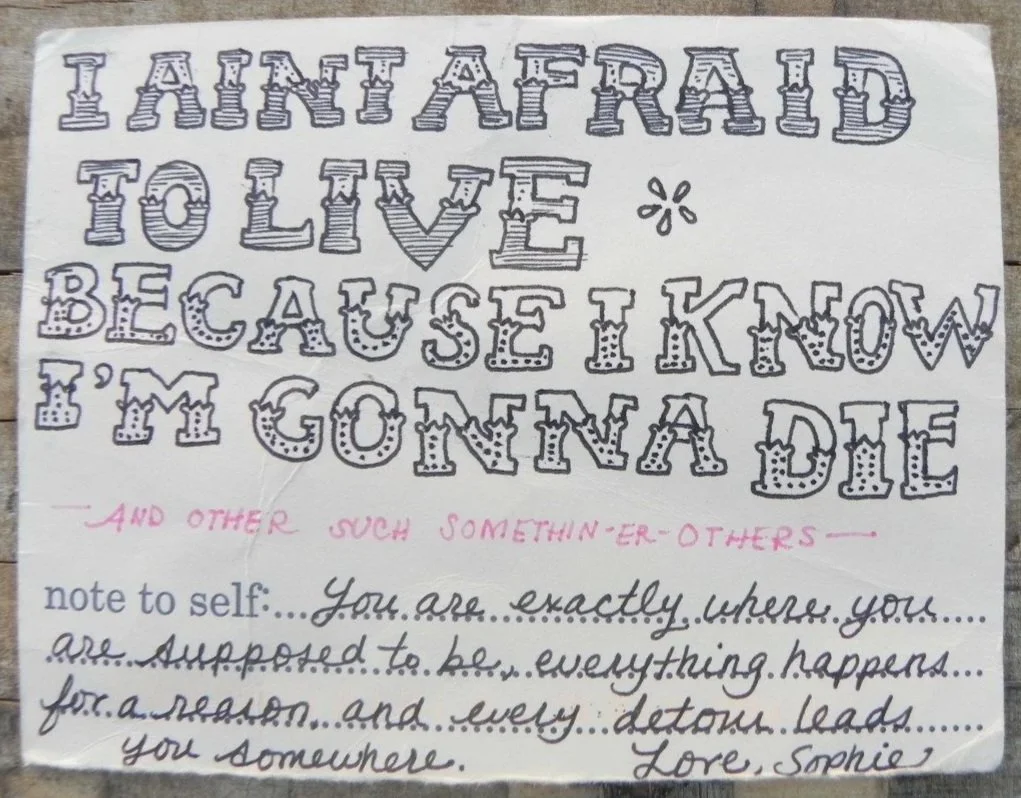 I AINT AFRAID
TO LIVE
BECAUSE I KNOW
I'M GONNA DIE
—AND OTHER SUCH SOMETHIN-ER-OTHERS—
note to self:...You are exactly where you
are supposed to be, everything happens
for a reason, and every detour leads
you somewhere. Love, Sophie